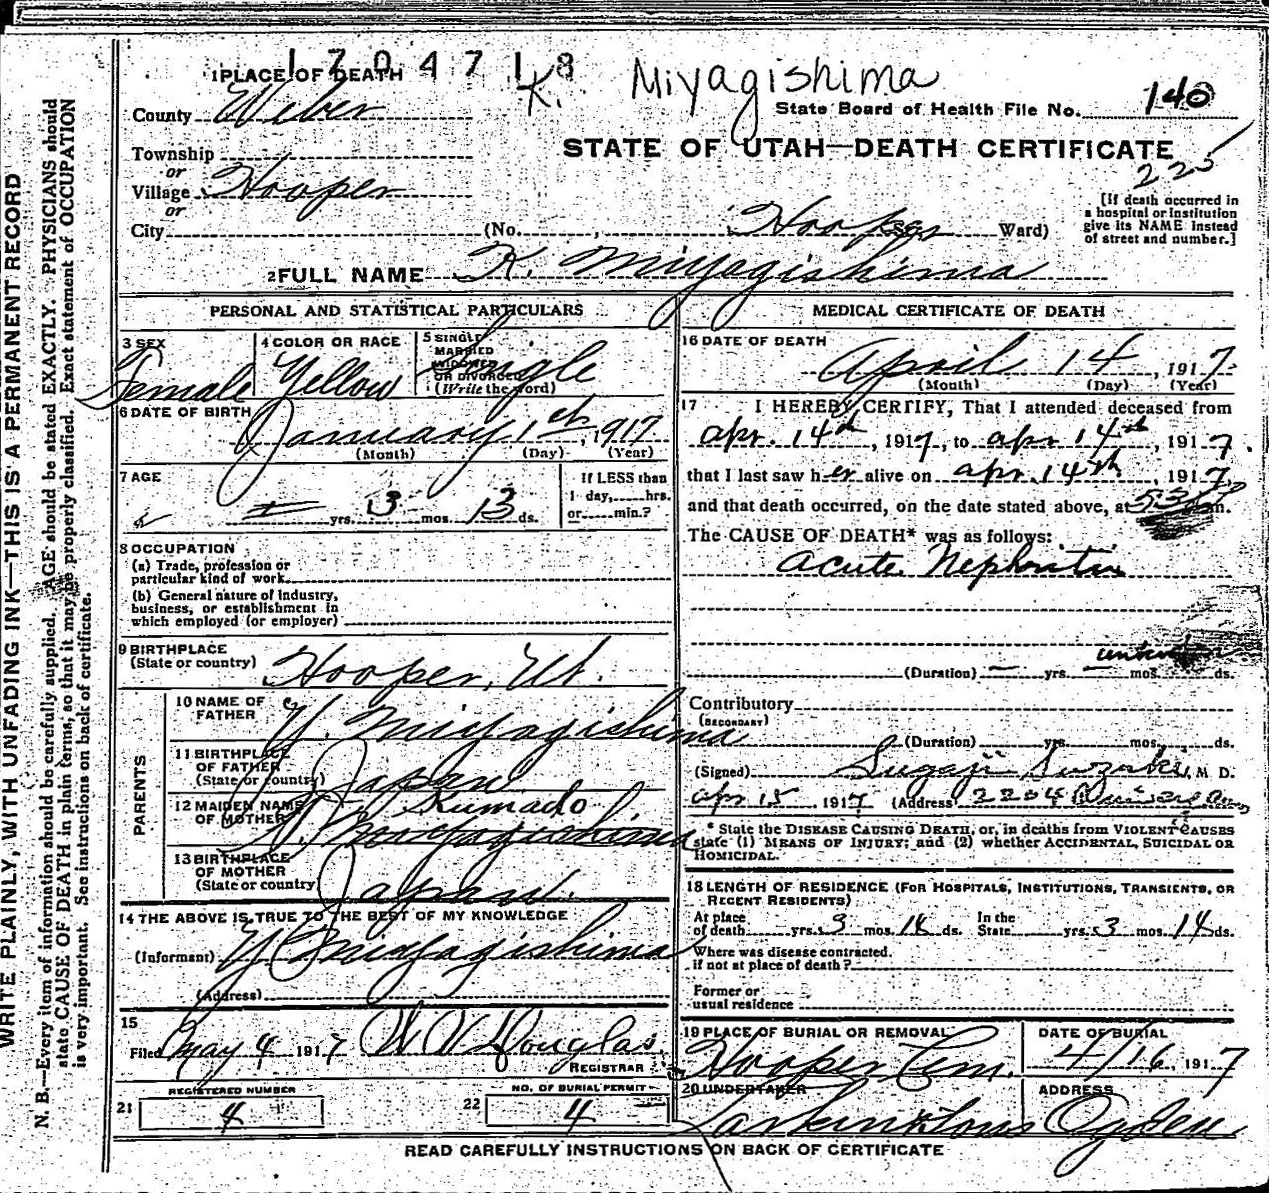 1704718
K. Miyagishima
1 PLACE OF DEATH
State Board of Health File No. 140
County Weber
STATE OF UTAH—DEATH CERTIFICATE
225
Township
or
Village Hooper
or
City (No. , Hooper Ward)
[If death occurred in
a hospital or institution
give its NAME instead
of street and number.]
2 FULL NAME K. Miyagishima
PERSONAL AND STATISTICAL PARTICULARS
3 SEX Female
4 COLOR OR RACE Yellow
5 SINGLE
MARRIED
WIDOWED
OR DIVORCED
(Write the word) Single
6 DATE OF BIRTH
January 1st, 1917
(Month) (Day) (Year)
7 AGE
yrs. 3 mos. 13 ds.
If LESS than
1 day, hrs.
or min.?
8 OCCUPATION
(a) Trade, profession or
particular kind of work
(b) General nature of industry,
business, or establishment in
which employed (or employer)
9 BIRTHPLACE
(State or country) Hooper, Ut.
PARENTS
10 NAME OF
FATHER Y. Miyagishima
11 BIRTHPLACE
OF FATHER
(State or country) Japan
12 MAIDEN NAME
OF MOTHER Kumado
Miyagishima
13 BIRTHPLACE
OF MOTHER
(State or country) Japan.
14 THE ABOVE IS TRUE TO THE BEST OF MY KNOWLEDGE
(Informant) Y Miyagishima
(Address)
15
Filed May 4 1917 W W Douglas
REGISTRAR
REGISTERED NUMBER
21 4
NO. OF BURIAL PERMIT
22 4
MEDICAL CERTIFICATE OF DEATH
16 DATE OF DEATH
April 14, 1917
(Month) (Day) (Year)
17 I HEREBY CERTIFY, That I attended deceased from
apr. 14th, 1917, to apr 14th, 1917.
that I last saw her alive on apr. 14th, 1917,
and that death occurred, on the date stated above, at m.
The CAUSE OF DEATH* was as follows:
acute Nephritis
(Duration) — yrs. unknown mos. ds.
Contributory
(SECONDARY)
(Duration) yrs. mos. ds.
(Signed) Sugaji Suzuki, M. D.
apr 15 1917 (Address) 2204
* State the DISEASE CAUSING DEATH, or, in deaths from VIOLENT CAUSES
state (1) MEANS OF INJURY; and (2) whether ACCIDENTAL, SUICIDAL OR
HOMICIDAL.
18 LENGTH OF RESIDENCE (FOR HOSPITALS, INSTITUTIONS, TRANSIENTS, OR
RECENT RESIDENTS)
At place
of death yrs. 3 mos. 14 ds.
In the
State yrs. 3 mos. 14 ds.
Where was disease contracted.
if not at place of death?
Former or
usual residence
19 PLACE OF BURIAL OR REMOVAL
Hooper Cem.
DATE OF BURIAL
4/16, 1917
20 UNDERTAKER
Larkin & Sons
ADDRESS
Ogden
READ CAREFULLY INSTRUCTIONS ON BACK OF CERTIFICATE
WRITE PLAINLY, WITH UNFADING INK—THIS IS A PERMANENT RECORD
N. B.—Every item of information should be carefully supplied. AGE should be stated EXACTLY. PHYSICIANS should
state CAUSE OF DEATH in plain terms, so that it may be properly classified. Exact statement of OCCUPATION
is very important. See instructions on back of certificate.